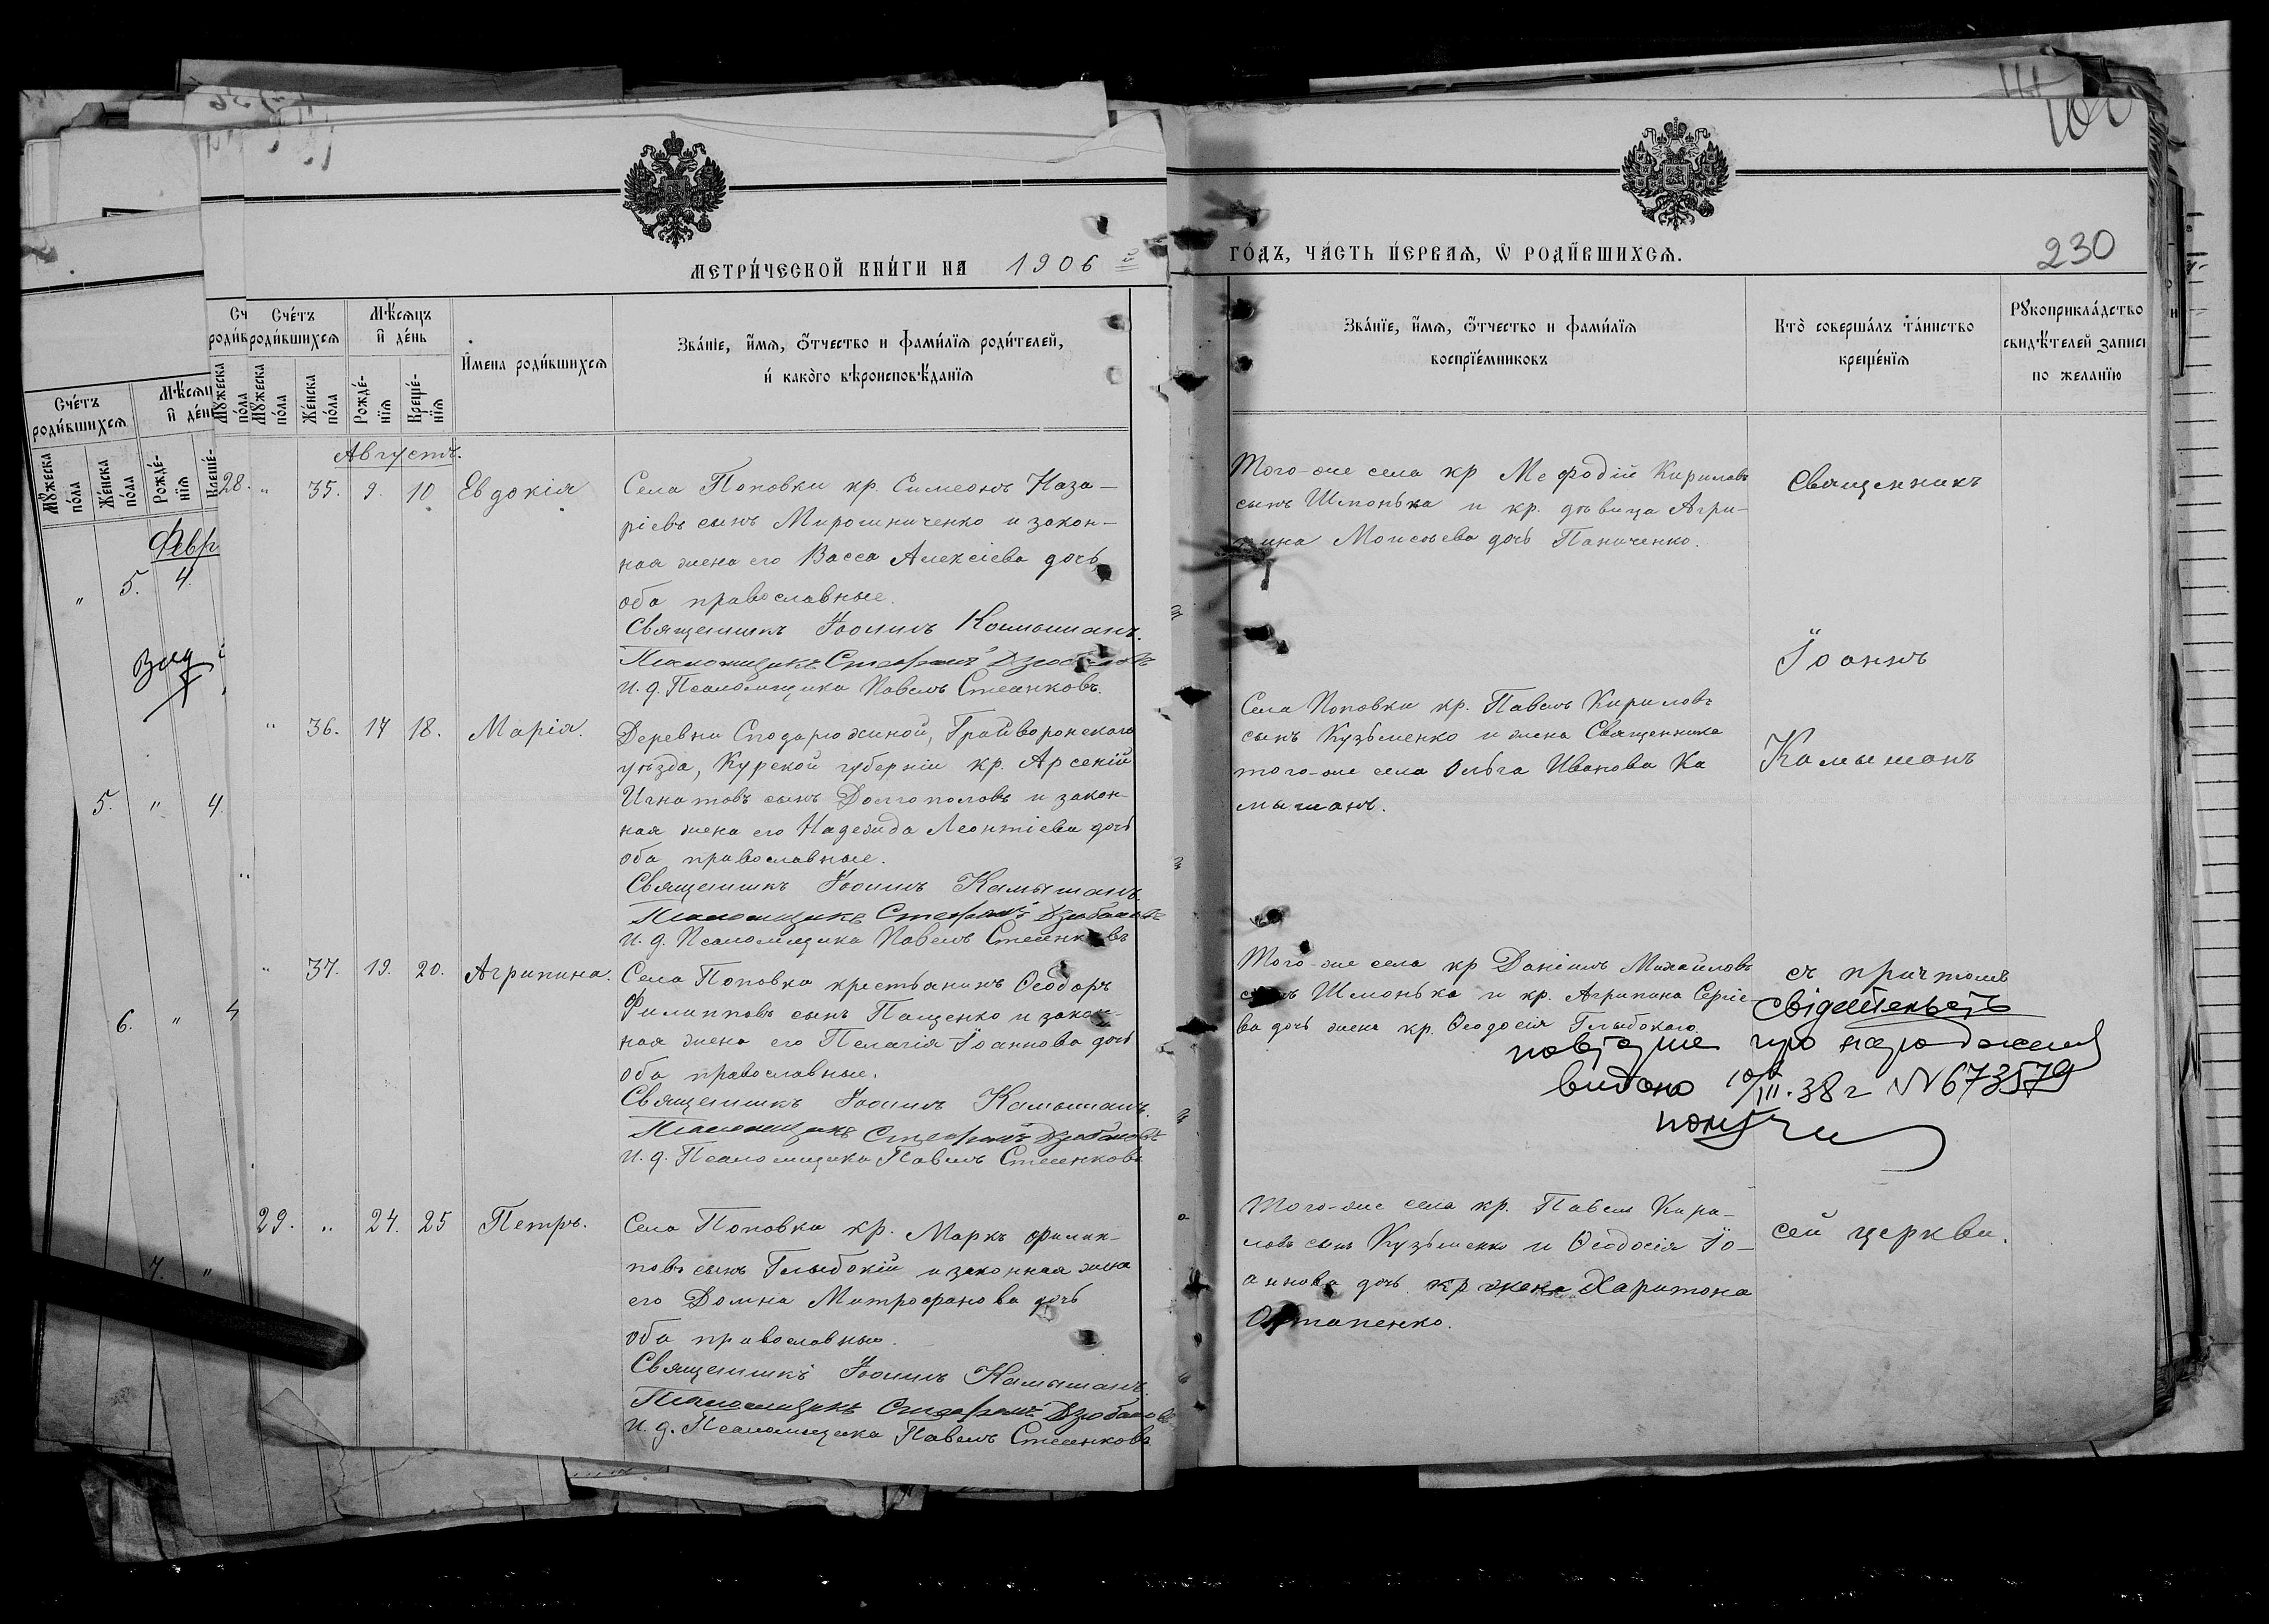 230
МЕТРИ́ЧЕСКОЙ КНИ́ГИ НА 1906 й
ГО́ДЪ, ЧА́СТЬ ПЕ́РВАЯ, Ѡ РОДИ́ВШИХСЯ.
Сче́тъ роди́вшихся
Мꙋ́жеска по́ла
Же́нска по́ла
Мѣ́сяцъ и҆ де́нь
Рожде́нїя
Креще́нїя
И҆мена роди́вшихся
Зва́нїе, и҆́мя, ѻ҆́тчество и фами́лїя роди́телей,
и҆ како́го вѣроисповѣ́данїя
Зва́нїе, и҆́мя, ѻ҆́тчество и фами́лїя
воспрїе́мниковъ
Кто̀ соверша́лъ та́инство
креще́нїя
Рꙋкоприкла́дство
свидѣ́телей записи
по желанїю
Августъ.
28. " 35. 9. 10 Евдокія
Села Поповки кр. Симеонъ Наза-
ріевъ сынъ Мирошниченко и закон-
ная жена его Васса Алексіева дочь
оба православные.
Священникъ Іоаннъ Камышанъ.
Псаломщикъ Стефанъ Дзюбановъ
И. д. Псаломщика Павелъ Стеенковъ.
Того-же села кр Мефодій Кириловъ
сынъ Шмонька и кр. дѣвица Агри-
пина Моисѣева дочь Паниченко.
Священникъ
Іоаннъ
Камышанъ
" 36. 17 18. Марія.
Деревни Сподарюжиной, Грайворонскаго
уѣзда, Курской губерніи кр. Арсеній
Игнатовъ сынъ Долгополовъ и закон-
ная жена его Надежда Леонтіева дочь
оба православные.
Священникъ Іоаннъ Камышанъ
Псаломщикъ Стефанъ Дзюбановъ
И. д. Псаломщика Павелъ Стеенковъ
Села Поповки кр. Павелъ Кириловъ
сынъ Кузьменко и жена Священника
того-же села Ольга Иванова Ка
мышанъ.
" 37. 19. 20. Агрипина.
Села Поповки крестьянинъ Ѳеодоръ
Филипповъ сынъ Пащенко и закон-
ная жена его Пелагія Іоаннова дочь
оба православные.
Священникъ Іоаннъ Камышанъ.
Псаломщикъ Стефанъ Дзюбановъ
И. д. Псаломщика Павелъ Стеенковъ
Того-же села кр Даніилъ Михайловъ
сынъ Шмонька и кр. Агрипина Сергіе-
ва дочь жена кр. Ѳеодосія Глыбокаго.
съ причтомъ
Свідетельство
повторне про народження
видано 10/III.38 г N 673579
29. " 24. 25 Петръ.
Села Поповки кр. Маркъ Филип-
повъ сынъ Глыбокій и законная жена
его Домна Митрофанова дочь
оба православные.
Священникъ Іоаннъ Камышанъ.
Псаломщикъ Стефанъ Дзюбановъ
И. д. Псаломщика Павелъ Стеенковъ
Того-же села кр. Павелъ Кири-
ловъ сынъ Кузьменко и Ѳеодосія Іо-
аннова дочь кр жена Харитона
Остапенко.
сей церкви.
Сче́тъ
роди́вшихся
Мꙋ́жеска по́ла
Же́нска по́ла
Рожде́нїя
Февр
" 5. 4.
5. " 4.
6. " 4
7. "